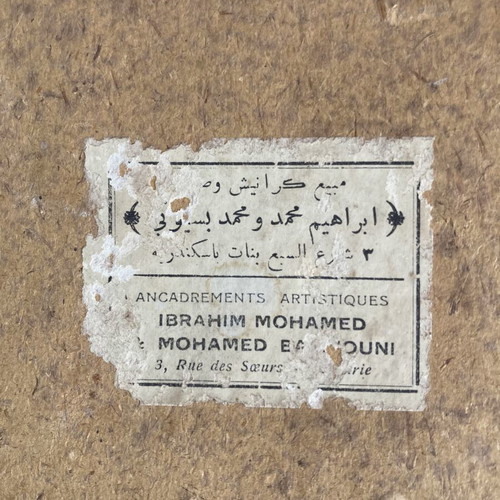 مبيع كرانيش وص
ابراهيم محمد و محمد بسيوني
٣ شارع السبع بنات باسكندرية
ANCADREMENTS ARTISTIQUES
IBRAHIM MOHAMED
& MOHAMED BA OUNI
3, Rue des Sœurs rie